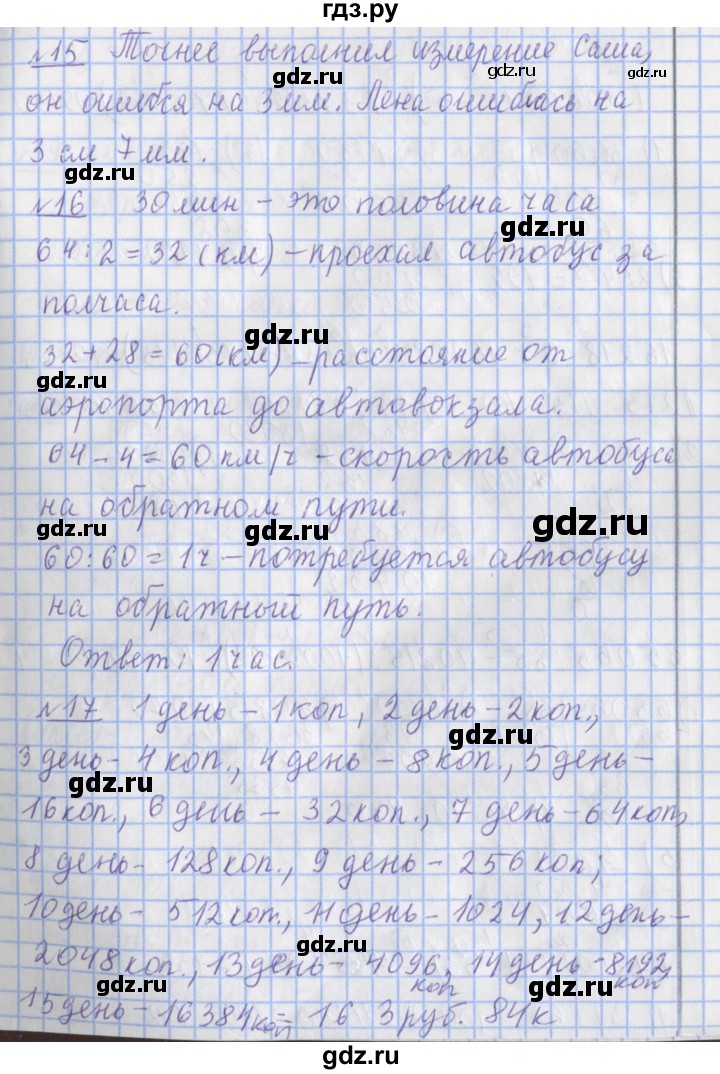 гдз.ру
№15 Точнее выполнил измерение Саша,
gdz.ru gdz.ru
он ошибся на 3 мм. Лена ошиблась на
3 см 7 мм.
gdz.ru
№16 30 мин – это половина часа
gdz.ru
64:2=32 (км) – проехал автобус за
полчаса.
gdz.ru
32+28=60(км) – расстояние от
gdz.ru
аэропорта до автовокзала.
64-4=60 км/ч – скорость автобуса
gdz.ru
на обратном пути.
gdz.ru
60:60=1ч – потребуется автобусу
на обратный путь.
gdz.ru
Ответ: 1 час.
gdz.ru
№17 1 день – 1 коп, 2 день – 2 коп.,
gdz.ru
3 день – 4 коп., 4 день – 8 коп., 5 день –
gdz.ru
16 коп., 6 день – 32 коп., 7 день – 64 коп,
8 день – 128 коп., 9 день – 256 коп;
gdz.ru
10 день – 512 коп., 11 день – 1024, 12 день –
gdz.ru
2048 коп., 13 день – 4096, 14 день – 8192,
gdz.ru
коп коп
15 день – 16384 коп = 16 3 руб. 84 к
gdz.ru
gdz.ru